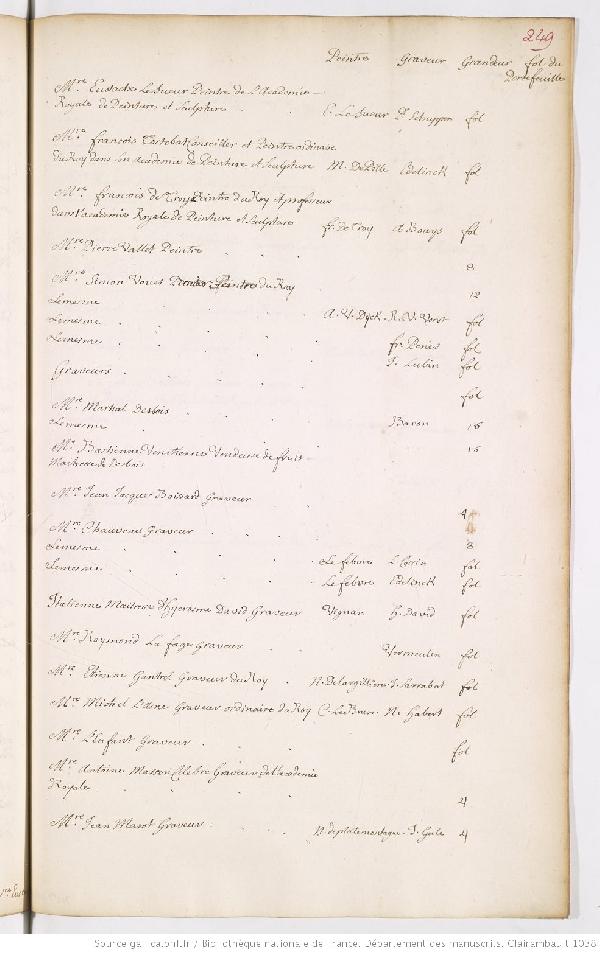 249
Peintre Graveur Grandeur fol du
Portefeuille
Mre Eustache Le Sueur Peintre de l'Academie
Royale de Peinture et Sculpture . C. Le Sueur P. Schuppen fol
Mre François Tortebat Conseiller et Peintre ordinaire
du Roy dans son academie de Peinture et Sculpture R. De Pille Edelinck fol
Mre François de Troy Peintre du Roy et professeur
dans l'academie Royale de Peinture et Sculpture fr. De Troy A Bouys fol
Mre Pierre Vallet Peintre . . 8
Mre Simon Vouet Peintre du Roy 12
Lemesme . . A. V. Dyck. R. V. Vorst fol
Lemesme . . fr. Perier fol
Lemesme . . J. Lubin fol
Graveurs . . fol
Mre Martial Desbois . Baron 16
Lemesme . . 16
Me Bastienne Venitienne Vendeuse de fruit
Maitresse de Desbois
Mre Jean Jacques Boissard Graveur 4
Mre Chauveau Graveur . . 8
Lemesme . . Le febvre L Cossin fol
Lemesme . . Le febvre Edelinck fol
Italienne Maitresse Hyerosme David Graveur Vignon H. David fol
Mre Raymond La fage Graveur . Vermeulen fol
Mre Etienne Gantrel Graveur du Roy . N. Delargilliere J. Sarrabat fol
Mre Michel L'asne Graveur ordinaire du Roy C. Le Brun N. Habert fol
Mre L'Enfant Graveur . fol
Mre Antoine Masson Celebre Graveur de l'academie
Royale . . 4
Mre Jean Marot Graveur . . J. Gole 4
Source gallica.bnf.fr / Bibliothèque nationale de France. Département des manuscrits. Clairambault 1038